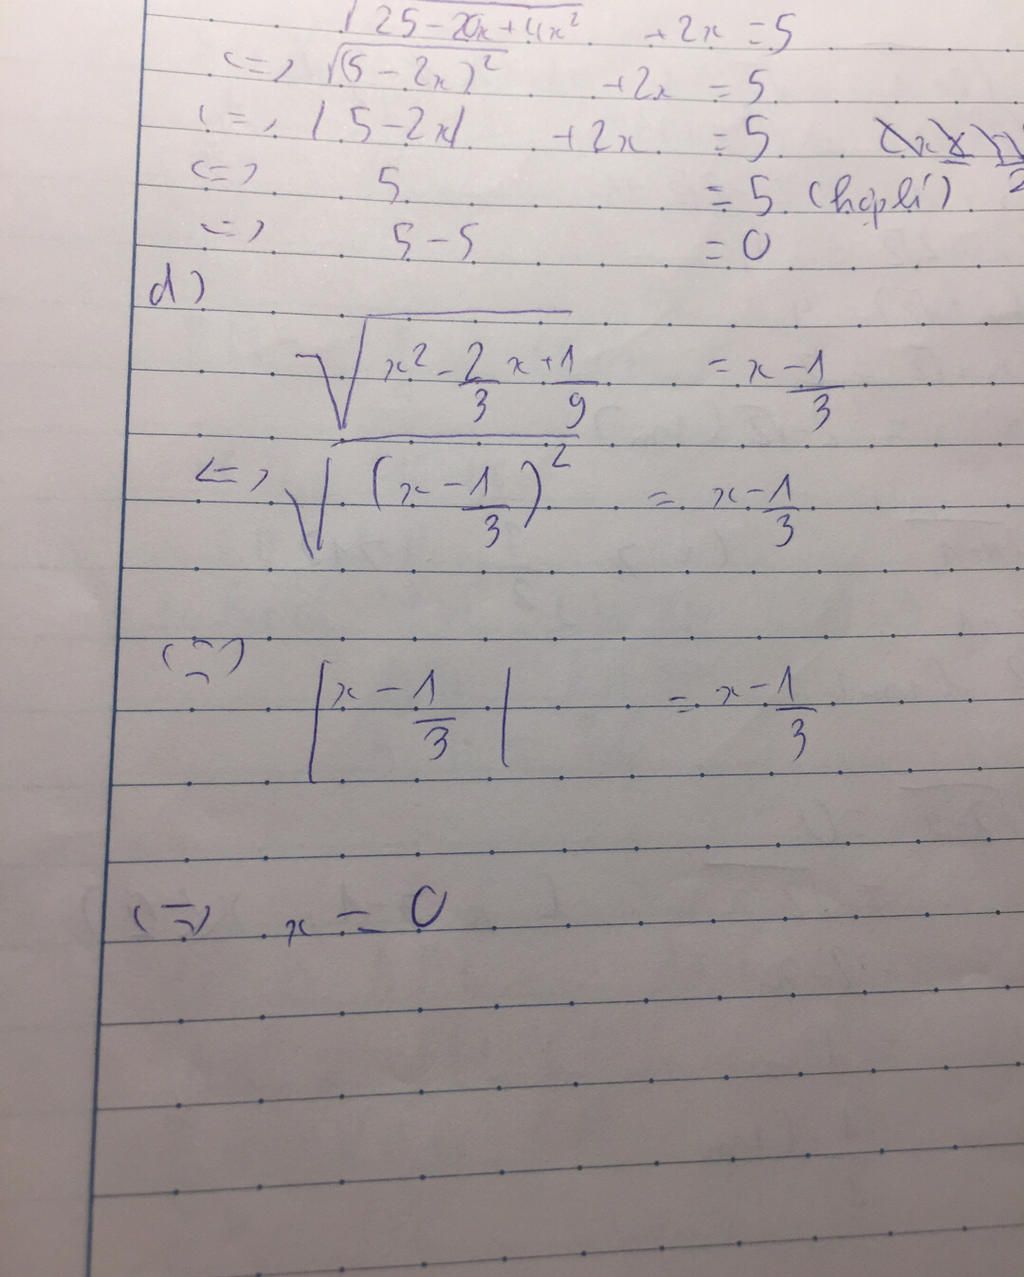 √25 - 20x + 4x² + 2x = 5
<=> √(5 - 2x)² + 2x = 5
<=> |5 - 2x| + 2x = 5
<=> 5 = 5 (hợp lí)
=> 5 - 5 = 0
d)
√x² - 2/3 x + 1/9 = x - 1/3
<=> √(x - 1/3)² = x - 1/3
<=> |x - 1/3| = x - 1/3
<=> x = 0